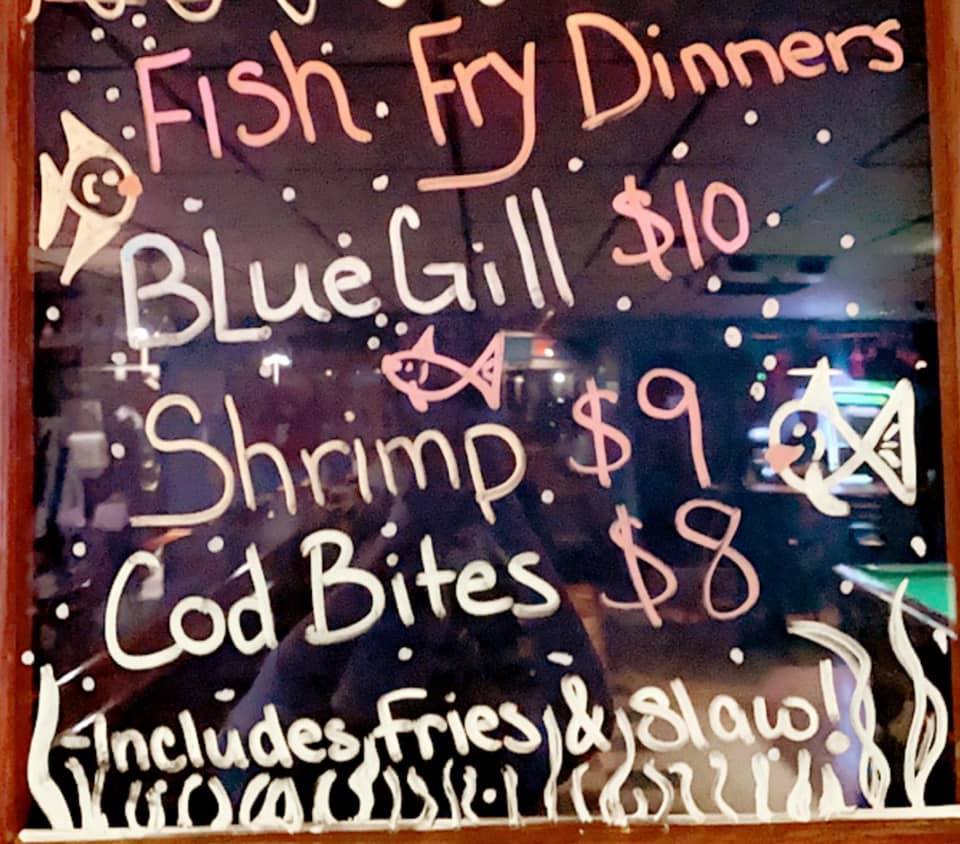 Fish Fry Dinners
BLue Gill $10
Shrimp $9
Cod Bites $8
-Includes Fries & Slaw!